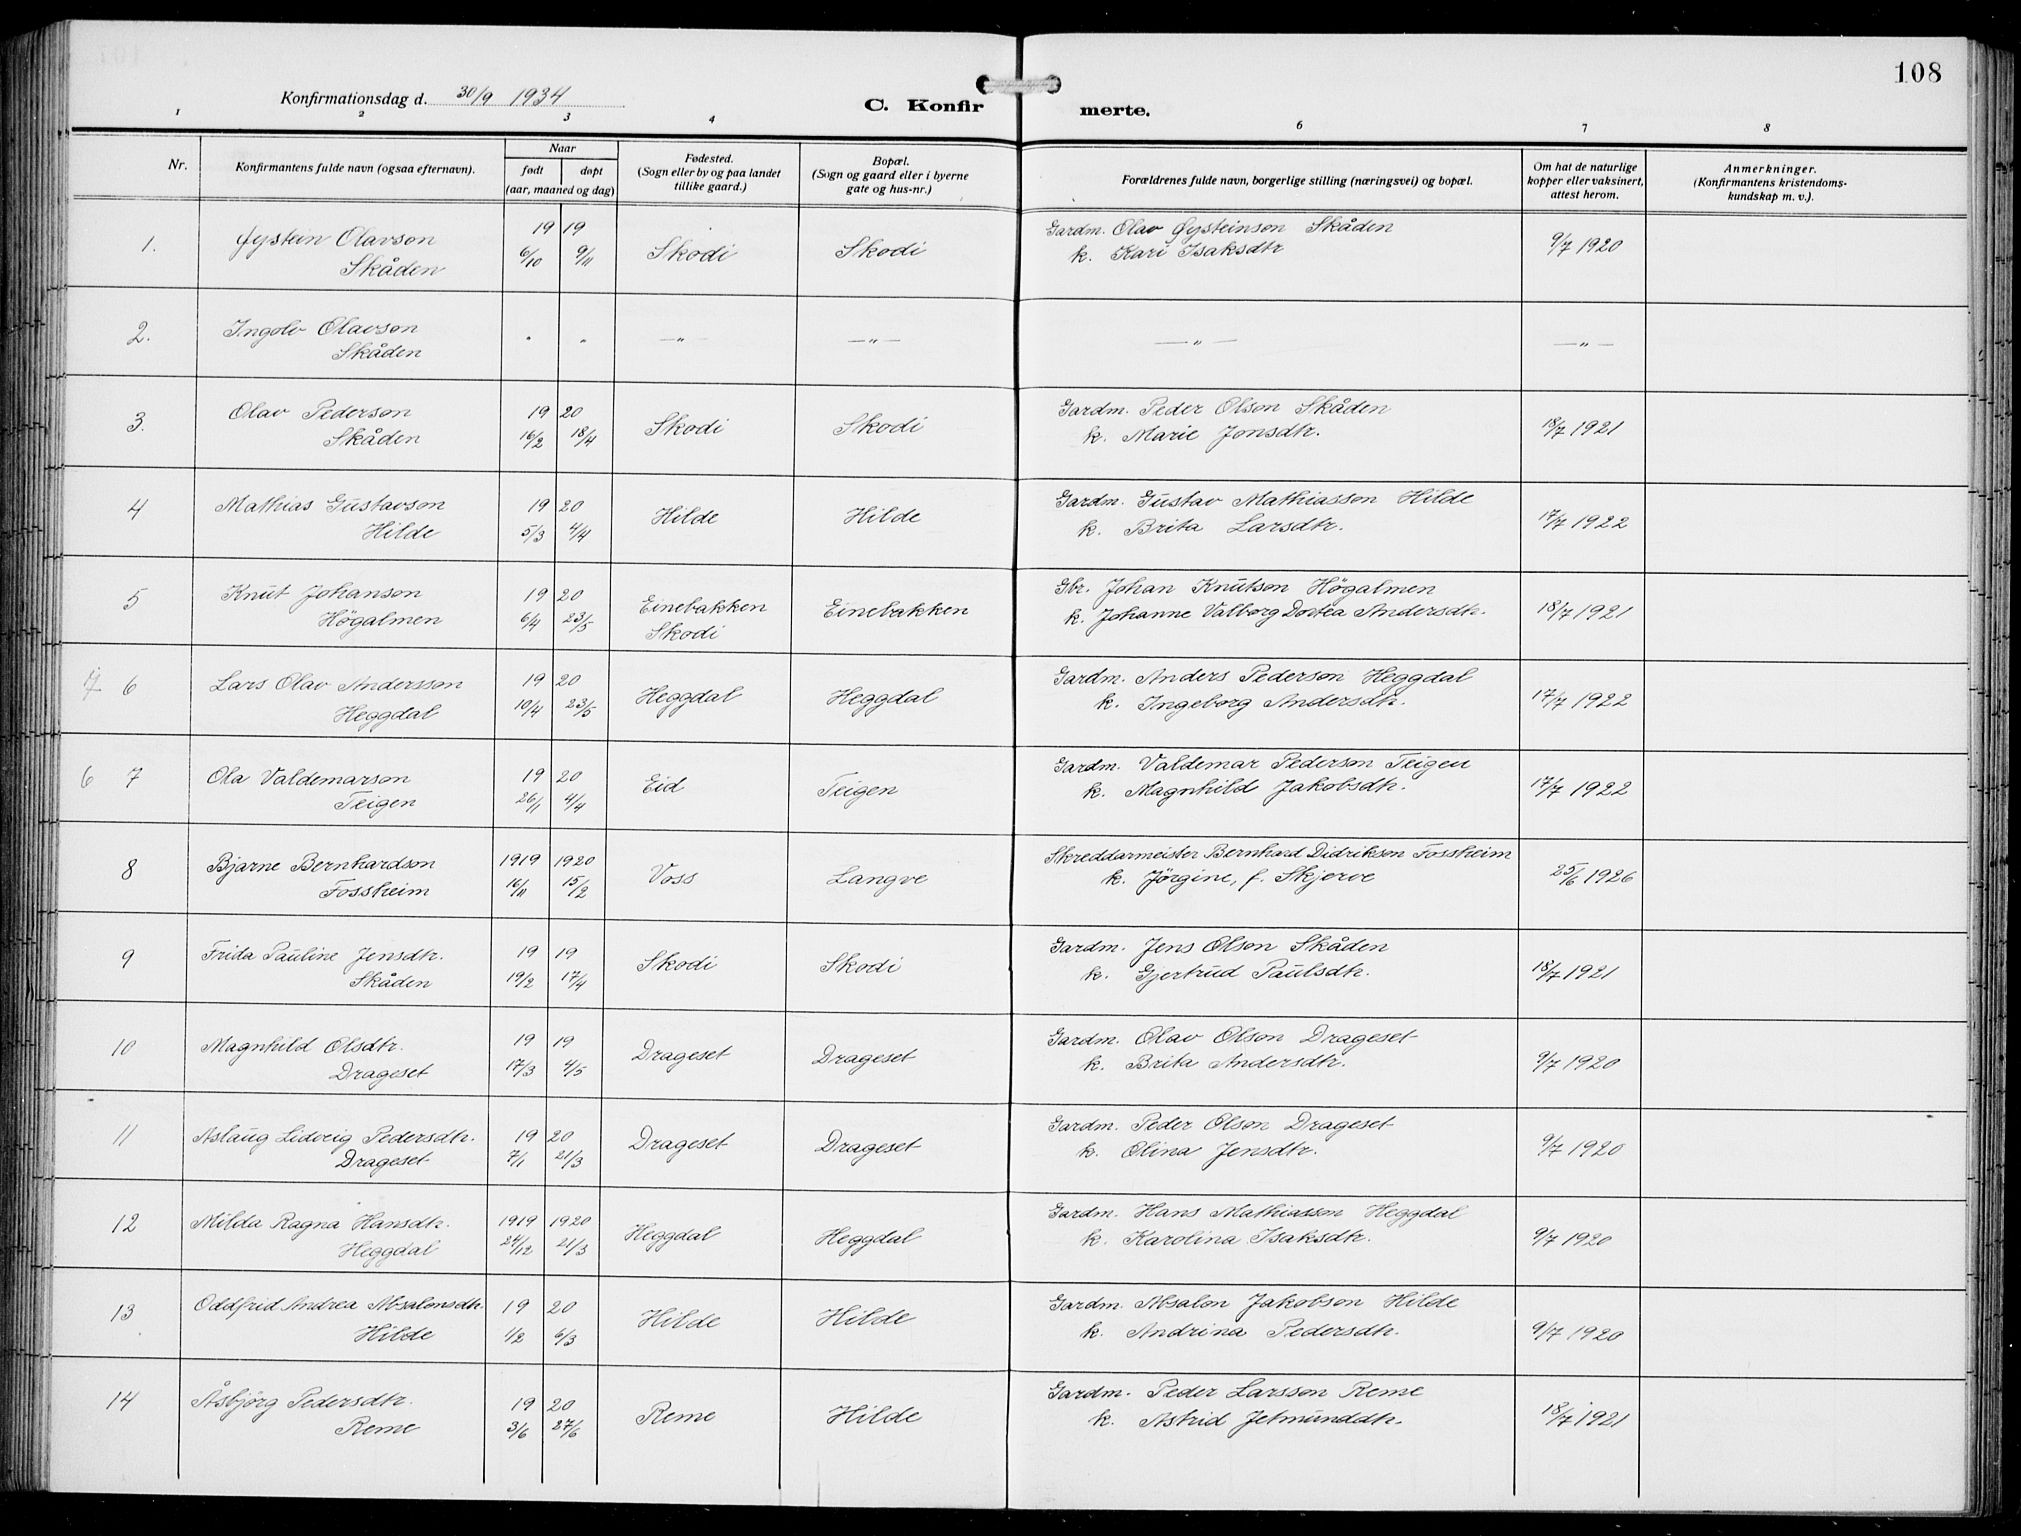 108
Konfirmationsdag d. 30/9 1934
C. Konfir merte.
1 2 3 4 6 7 8
Nr. Konfirmantens fulde navn (ogsaa efternavn). Naar født døpt (aar, maaned og dag) Fødested. (Sogn eller by og paa landet tillike gaard.) Bopæl. (Sogn og gaard eller i byerne gate og hus-nr.) Forældrenes fulde navn, borgerlige stilling (næringsvei) og bopæl. Om hat de naturlige kopper eller vaksinert, attest herom. Anmerkninger. (Konfirmantens kristendoms-kundskap m. v.).
1. Øystein Olavson 19 19 Skodi Skodi Gardm. Olav Øysteinson Skåden 9/7 1920
Skåden 6/10 9/11 k. Kari Isaksdtr
2. Ingolv Olavson " " —"— —"— —"— —"—
Skåden
3. Olav Pederson 19 20 Skodi Skodi Gardm. Peder Olson Skåden 18/7 1921
Skåden 16/2 18/4 k. Marie Jonsdtr.
4 Mathias Gustavson 19 20 Hilde Hilde Gardm. Gustav Mathiasson Hilde 17/7 1922
Hilde 5/3 4/4 k. Brita Larsdtr.
5 Knut Johanson 19 20 Einebakken Einebakken Gbr. Johan Knutson Högalmen 18/7 1921
Högalmen 6/4 23/5 Skodi k. Johanne Valborg Dortea Andersdtr.
7 6 Lars Olav Andersson 19 20 Heggdal Heggdal Gardm. Anders Pederson Heggdal 17/7 1922
Heggdal 10/4 23/5 k. Ingeborg Andersdtr.
6 7 Ola Valdemarson 19 20 Eid Teigen Gardm. Valdemar Pederson Teigen 17/7 1922
Teigen 26/1 4/4 k. Magnhild Jakobsdtr.
8 Bjarne Bernhardson 1919 1920 Voss Langve Skreddarmeister Bernhard Didrikson Fossheim 25/6 1926
Fossheim 16/11 15/2 k. Jörgine, f. Skjerve
9 Frida Pauline Jensdtr. 19 19 Skodi Skodi Gardm. Jens Olson Skåden 18/7 1921
Skåden 19/2 17/4 k. Gjertrud Paulsdtr.
10 Magnhild Olsdtr. 19 19 Drageset Drageset Gardm. Olav Olson Drageset 9/7 1920
Drageset 17/3 4/5 k. Brita Andersdtr.
11 Aslaug Lidveig Pedersdtr. 19 20 Drageset Drageset Gardm. Peder Olson Drageset 9/7 1920
Drageset 7/1 21/3 k. Olina Jensdtr.
12 Milda Ragna Hansdtr. 1919 1920 Heggdal Heggdal Gardm. Hans Mathiasson Heggdal 9/7 1920
Heggdal 24/12 21/3 k. Karolina Isaksdtr.
13 Oddfrid Andrea Absalonsdtr. 19 20 Hilde Hilde Gardm. Absalon Jakobson Hilde 9/7 1920
Hilde 1/2 6/3 k. Andrina Pedersdtr.
14 Åsbjörg Pedersdtr. 19 20 Reme Hilde Gardm. Peder Larsson Reme 18/7 1921
Reme 3/6 27/6 k. Astrid Jetmunddtr.